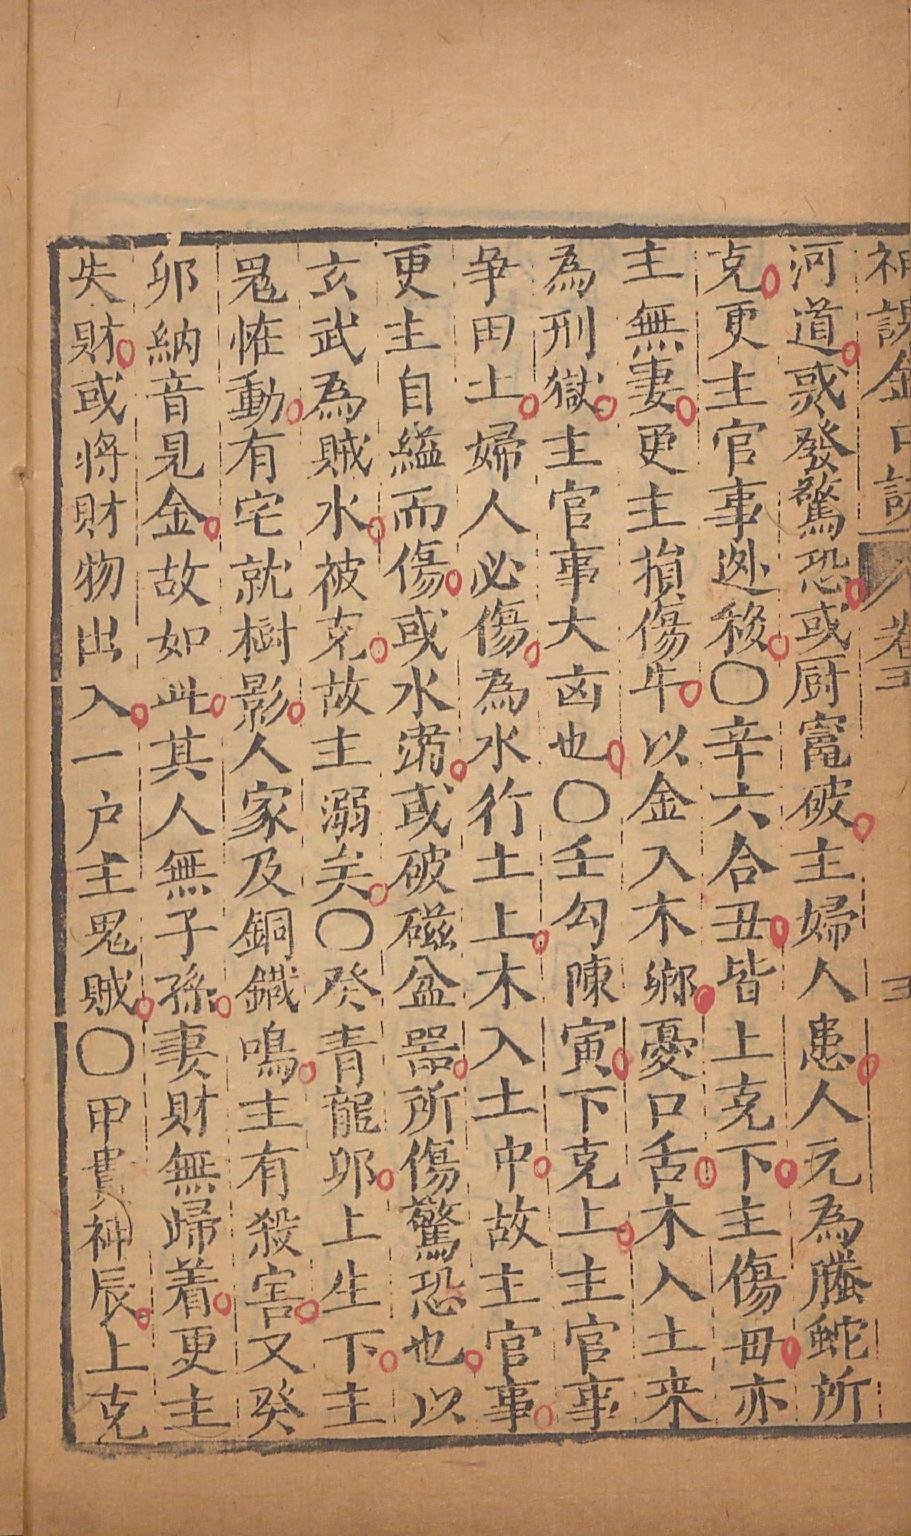 神課金口訣 卷三 三
河道或發驚恐或厨竃破主婦人患人元為螣蛇所
克更主官事迯移〇辛六合丑皆上克下主傷毋亦
主無妻更主損傷牛以金入木鄉憂口舌木入土来
為刑獄主官事大凶也〇壬勾陳寅下克上主官事
争田土婦人必傷為水行土上木入土中故主官事
更主自縊而傷或水溺或破磁盆器所傷驚恐也以
玄武為賊水被克故主溺关〇癸青龍卯上生下主
鬼恠動有宅就樹影人家及銅鐵鳴主有殺害又癸
卯納音見金故如此其人無子孫妻財無歸着更主
失財或将財物出入一户主鬼賊〇甲貴神辰上克